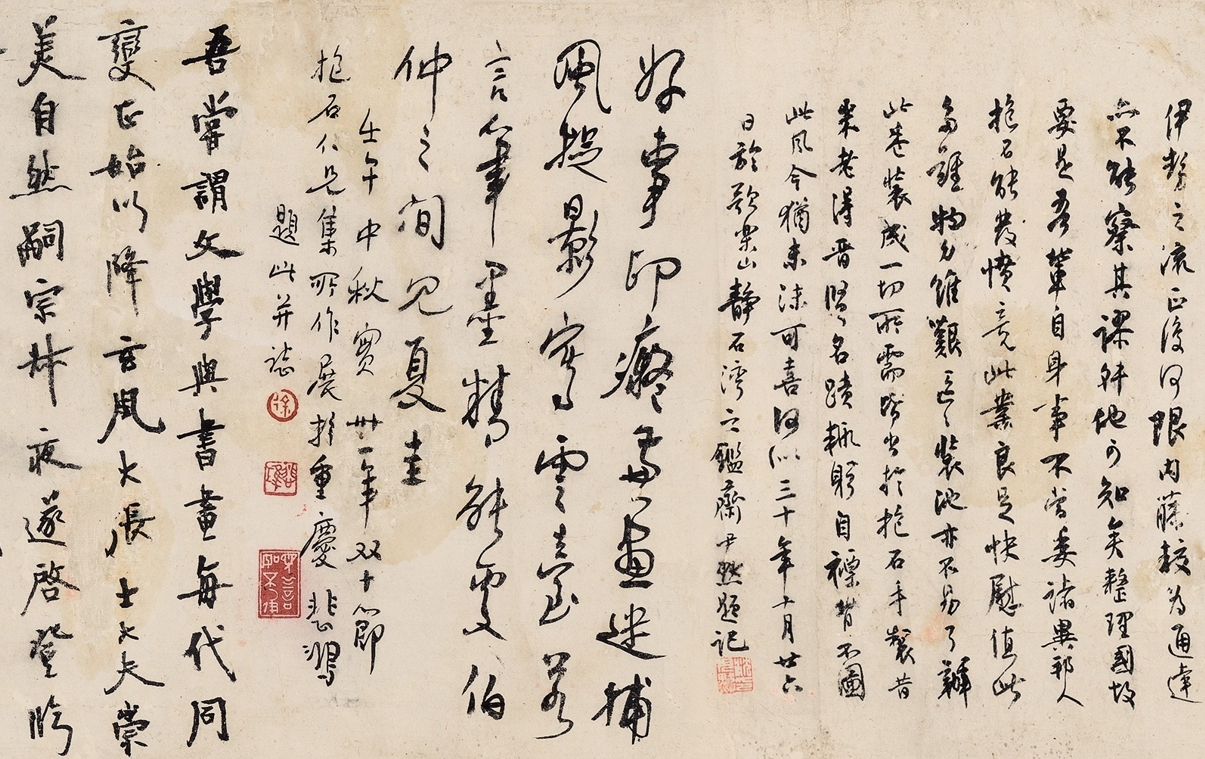 伊勢之流正復何限内藤較為通達
亦不能察其謬舛他可知矣整理國故
要是吾輩自身事不當委諸異邦人
抱石能發憤竟此業良足快慰值此
多難物力維艱區區裝池亦不易了辦
此卷裝成一切所需皆出於抱石手製昔
米老得晋賢名蹟輒躬自褾背不圖
此風今猶未沫可喜何似三十年十月廿六
日於歌樂山靜石灣之鑑齋尹默題記
好事印癡兼畫迷捕
風捉影寫雲霓若
言筆墨精能處伯
仲之間見夏圭
壬午中秋實卅一年双十節
抱石仁兄集所作展於重慶悲鴻
題此并誌
吾嘗謂文學與書畫每代同
變正始以降玄風大張士大夫崇
美自然嗣宗叔夜遂啓登臨